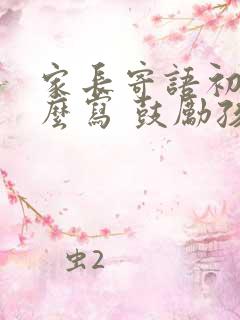 家長寄語初
麼寫 鼓勵孩
虫2